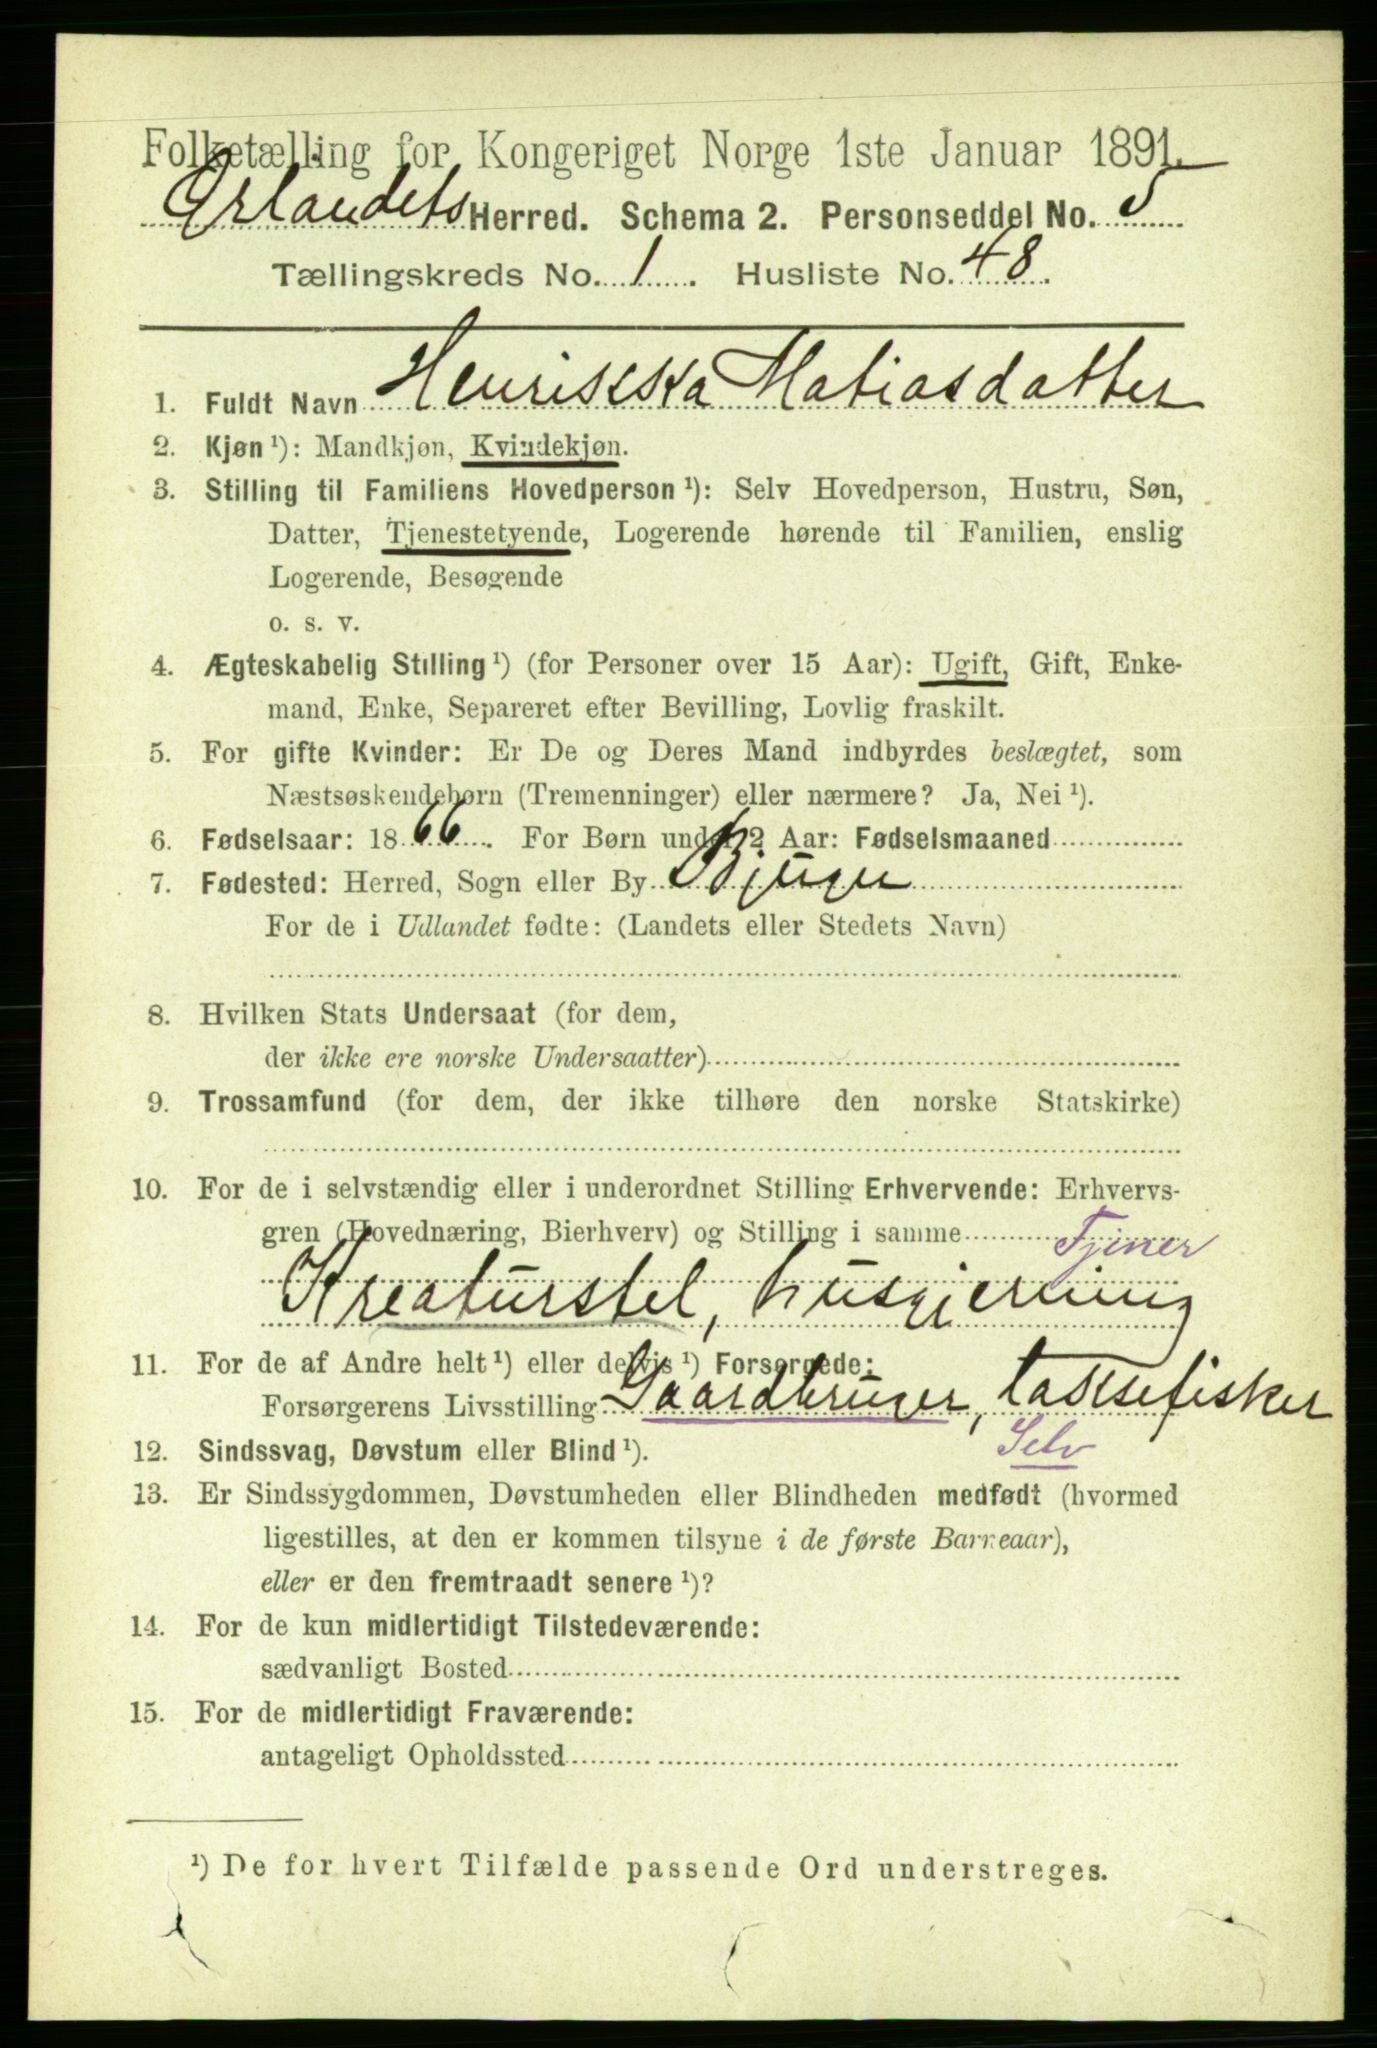 Folketælling for Kongeriget Norge 1ste Januar 1891.
Ørlandets Herred. Schema 2. Personseddel No. 5
Tællingskreds No. 1. Husliste No. 48.
1. Fuldt Navn Henrikka Matiasdatter
2. Kjøn ¹): Mandkjøn, Kvindekjøn.
3. Stilling til Familiens Hovedperson ¹): Selv Hovedperson, Hustru, Søn,
Datter, Tjenestetyende, Logerende hørende til Familien, enslig
Logerende, Besøgende
o. s. v.
4. Ægteskabelig Stilling ¹) (for Personer over 15 Aar): Ugift, Gift, Enke-
mand, Enke, Separeret efter Bevilling, Lovlig fraskilt.
5. For gifte Kvinder: Er De og Deres Mand indbyrdes beslægtet, som
Næstsøskendebørn (Tremenninger) eller nærmere? Ja, Nei ¹).
6. Fødselsaar: 1866. For Børn under 2 Aar: Fødselsmaaned
7. Fødested: Herred, Sogn eller By Bjugn
For de i Udlandet fødte: (Landets eller Stedets Navn)
8. Hvilken Stats Undersaat (for dem,
der ikke ere norske Undersaatter)
9. Trossamfund (for dem, der ikke tilhøre den norske Statskirke)
10. For de i selvstændig eller i underordnet Stilling Erhvervende: Erhvervs-
gren (Hovednæring, Bierhverv) og Stilling i samme Tjener
Kreaturstel, husgjerning
11. For de af Andre helt ¹) eller delvis ¹) Forsørgede:
Forsørgerens Livsstilling Gaardbruger, taksefisker
12. Sindssvag, Døvstum eller Blind ¹). Selv
13. Er Sindssygdommen, Døvstumheden eller Blindheden medfødt (hvormed
ligestilles, at den er kommen tilsyne i de første Barneaar),
eller er den fremtraadt senere ¹)?
14. For de kun midlertidigt Tilstedeværende:
sædvanligt Bosted
15. For de midlertidigt Fraværende:
antageligt Opholdssted
¹) De for hvert Tilfælde passende Ord understreges.